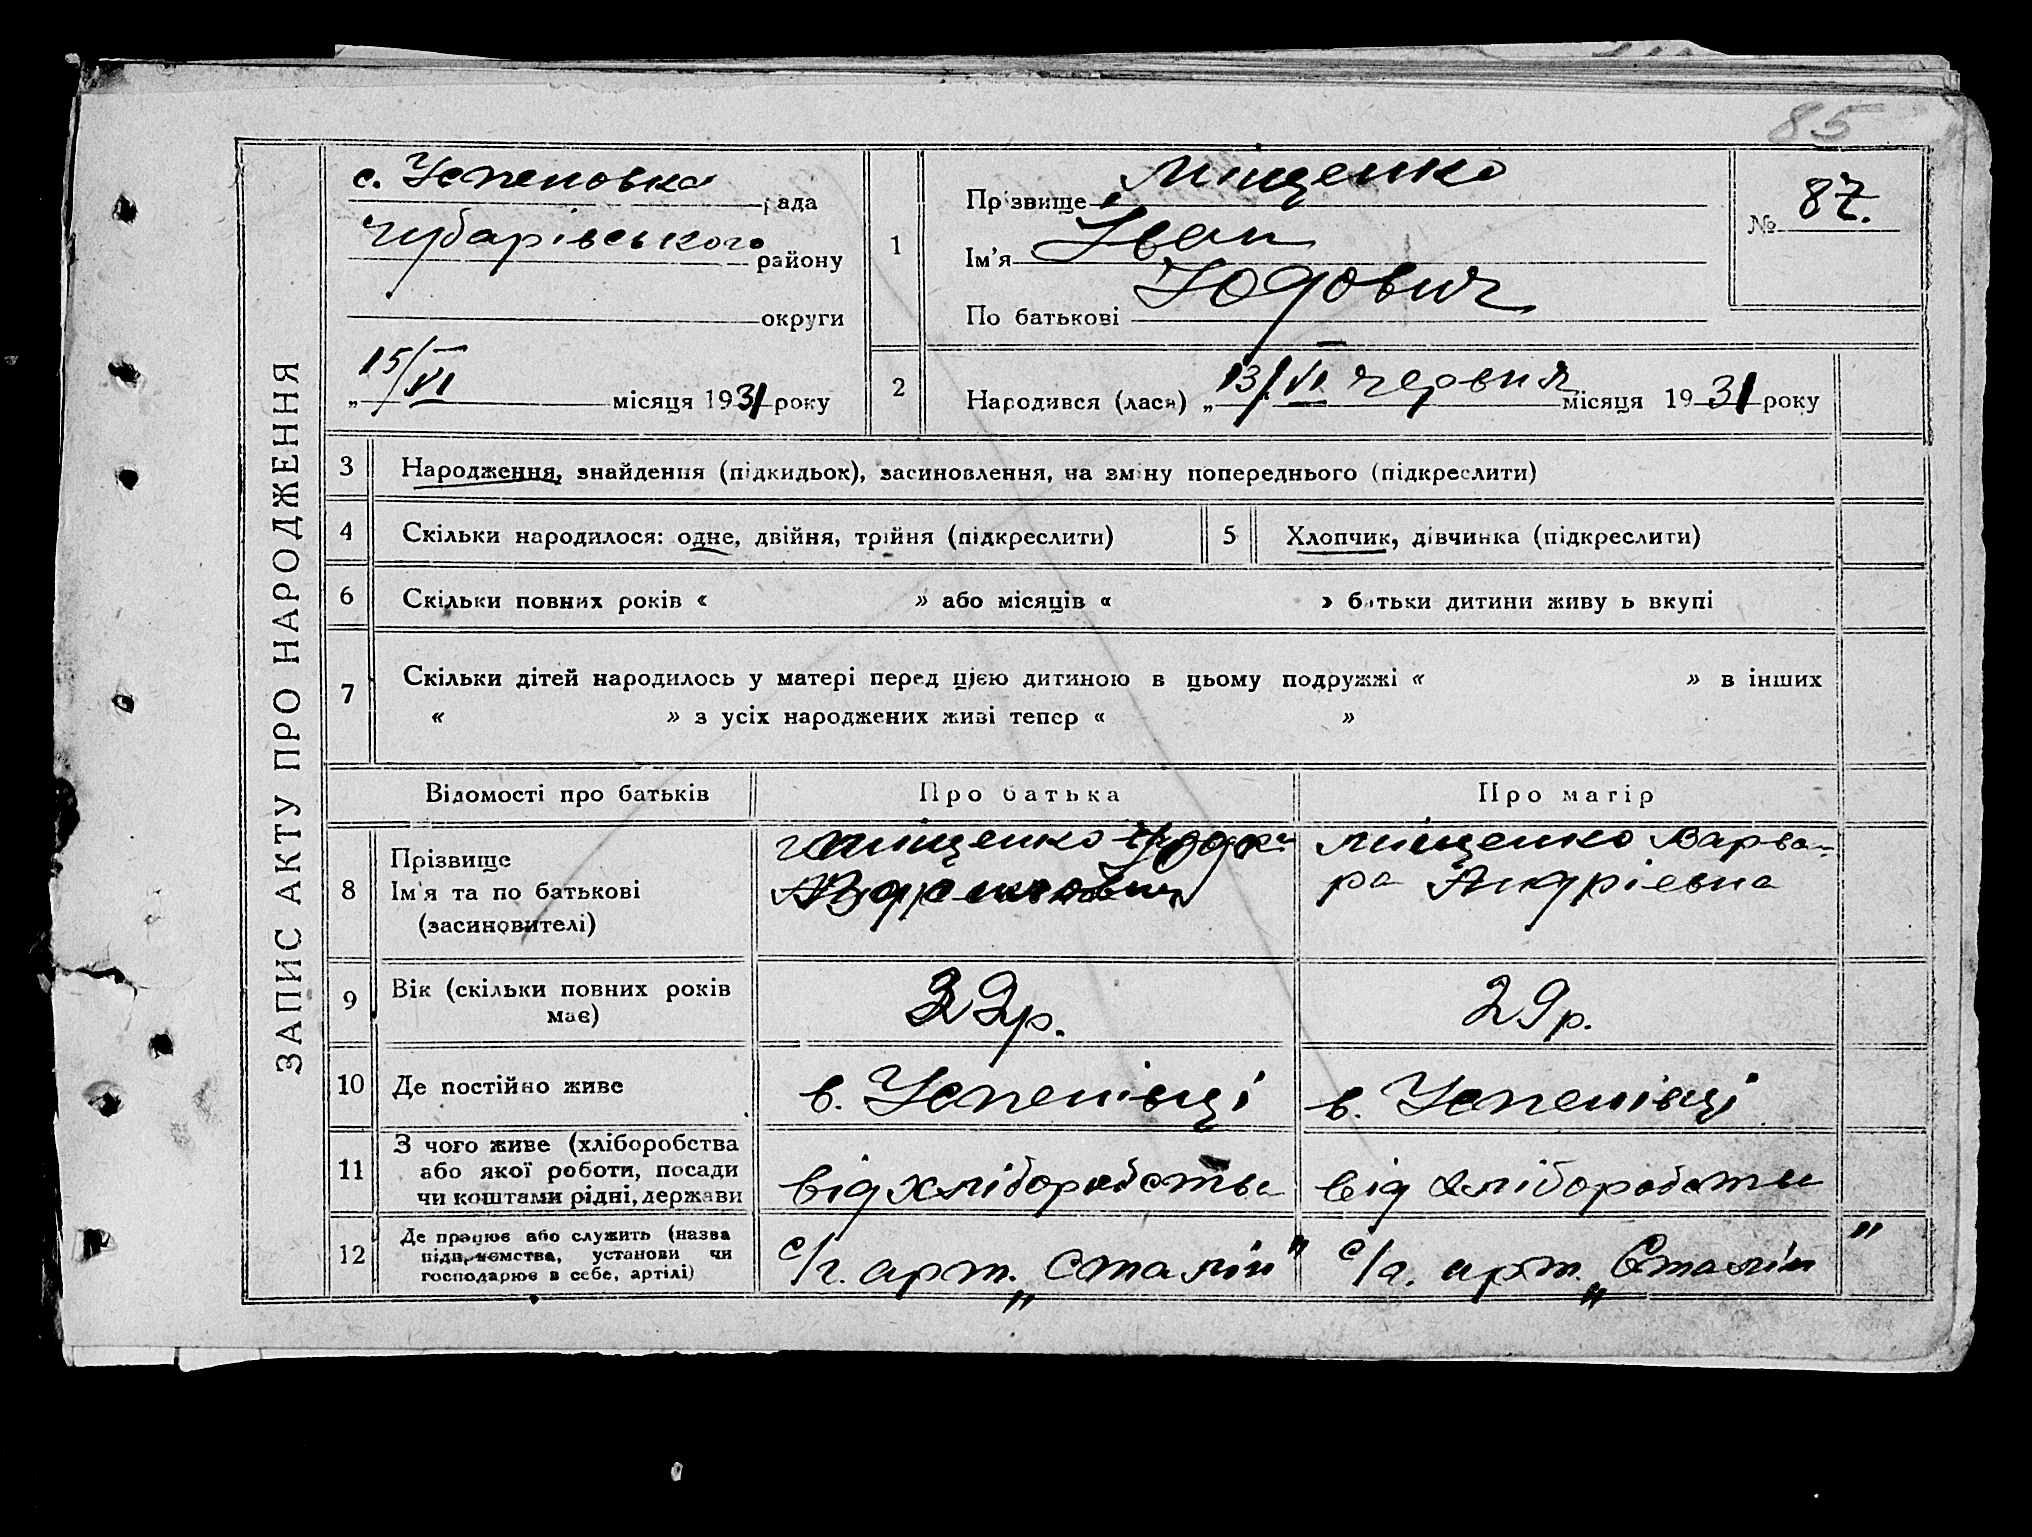 85
ЗАПИС АКТУ ПРО НАРОДЖЕННЯ
с. Успеновка рада
Чубарівського району
округи
„ 15/VI місяця 1931 року
1
Прізвище Міщенко
Ім'я Іван
По батькові Юдович
№ 87.
2
Народився (лася) „ 13/VI червня місяця 1931 року
3 Народження, знайдення (підкидьок), засиновлення, на зміну попереднього (підкреслити)
4 Скільки народилося: одне, двійня, трійня (підкреслити)
5 Хлопчик, дівчинка (підкреслити)
6 Скільки повних років « » або місяців « » батьки дитини живуть вкупі
7 Скільки дітей народилось у матері перед цією дитиною в цьому подружжі « » в інших
« » з усіх народжених живі тепер « »
Відомості про батьків Про батька Про матір
8 Прізвище
Ім'я та по батькові
(засиновителі)
Міщенко
Міщенко Варва-
ра Андріевна
9 Вік (скільки повних років
має)
32р.
29р.
10 Де постійно живе
в. Успенівці
в. Успенівці
11 З чого живе (хліборобства
або якої роботи, посади
чи коштами рідні, держави
від хліборобства
від хліборобства
12 Де працює або служить (назва
підприємства, установи чи
господарює в себе, артілі)
с/г. арт. „Сталін"
с/г. арт. „Сталін"